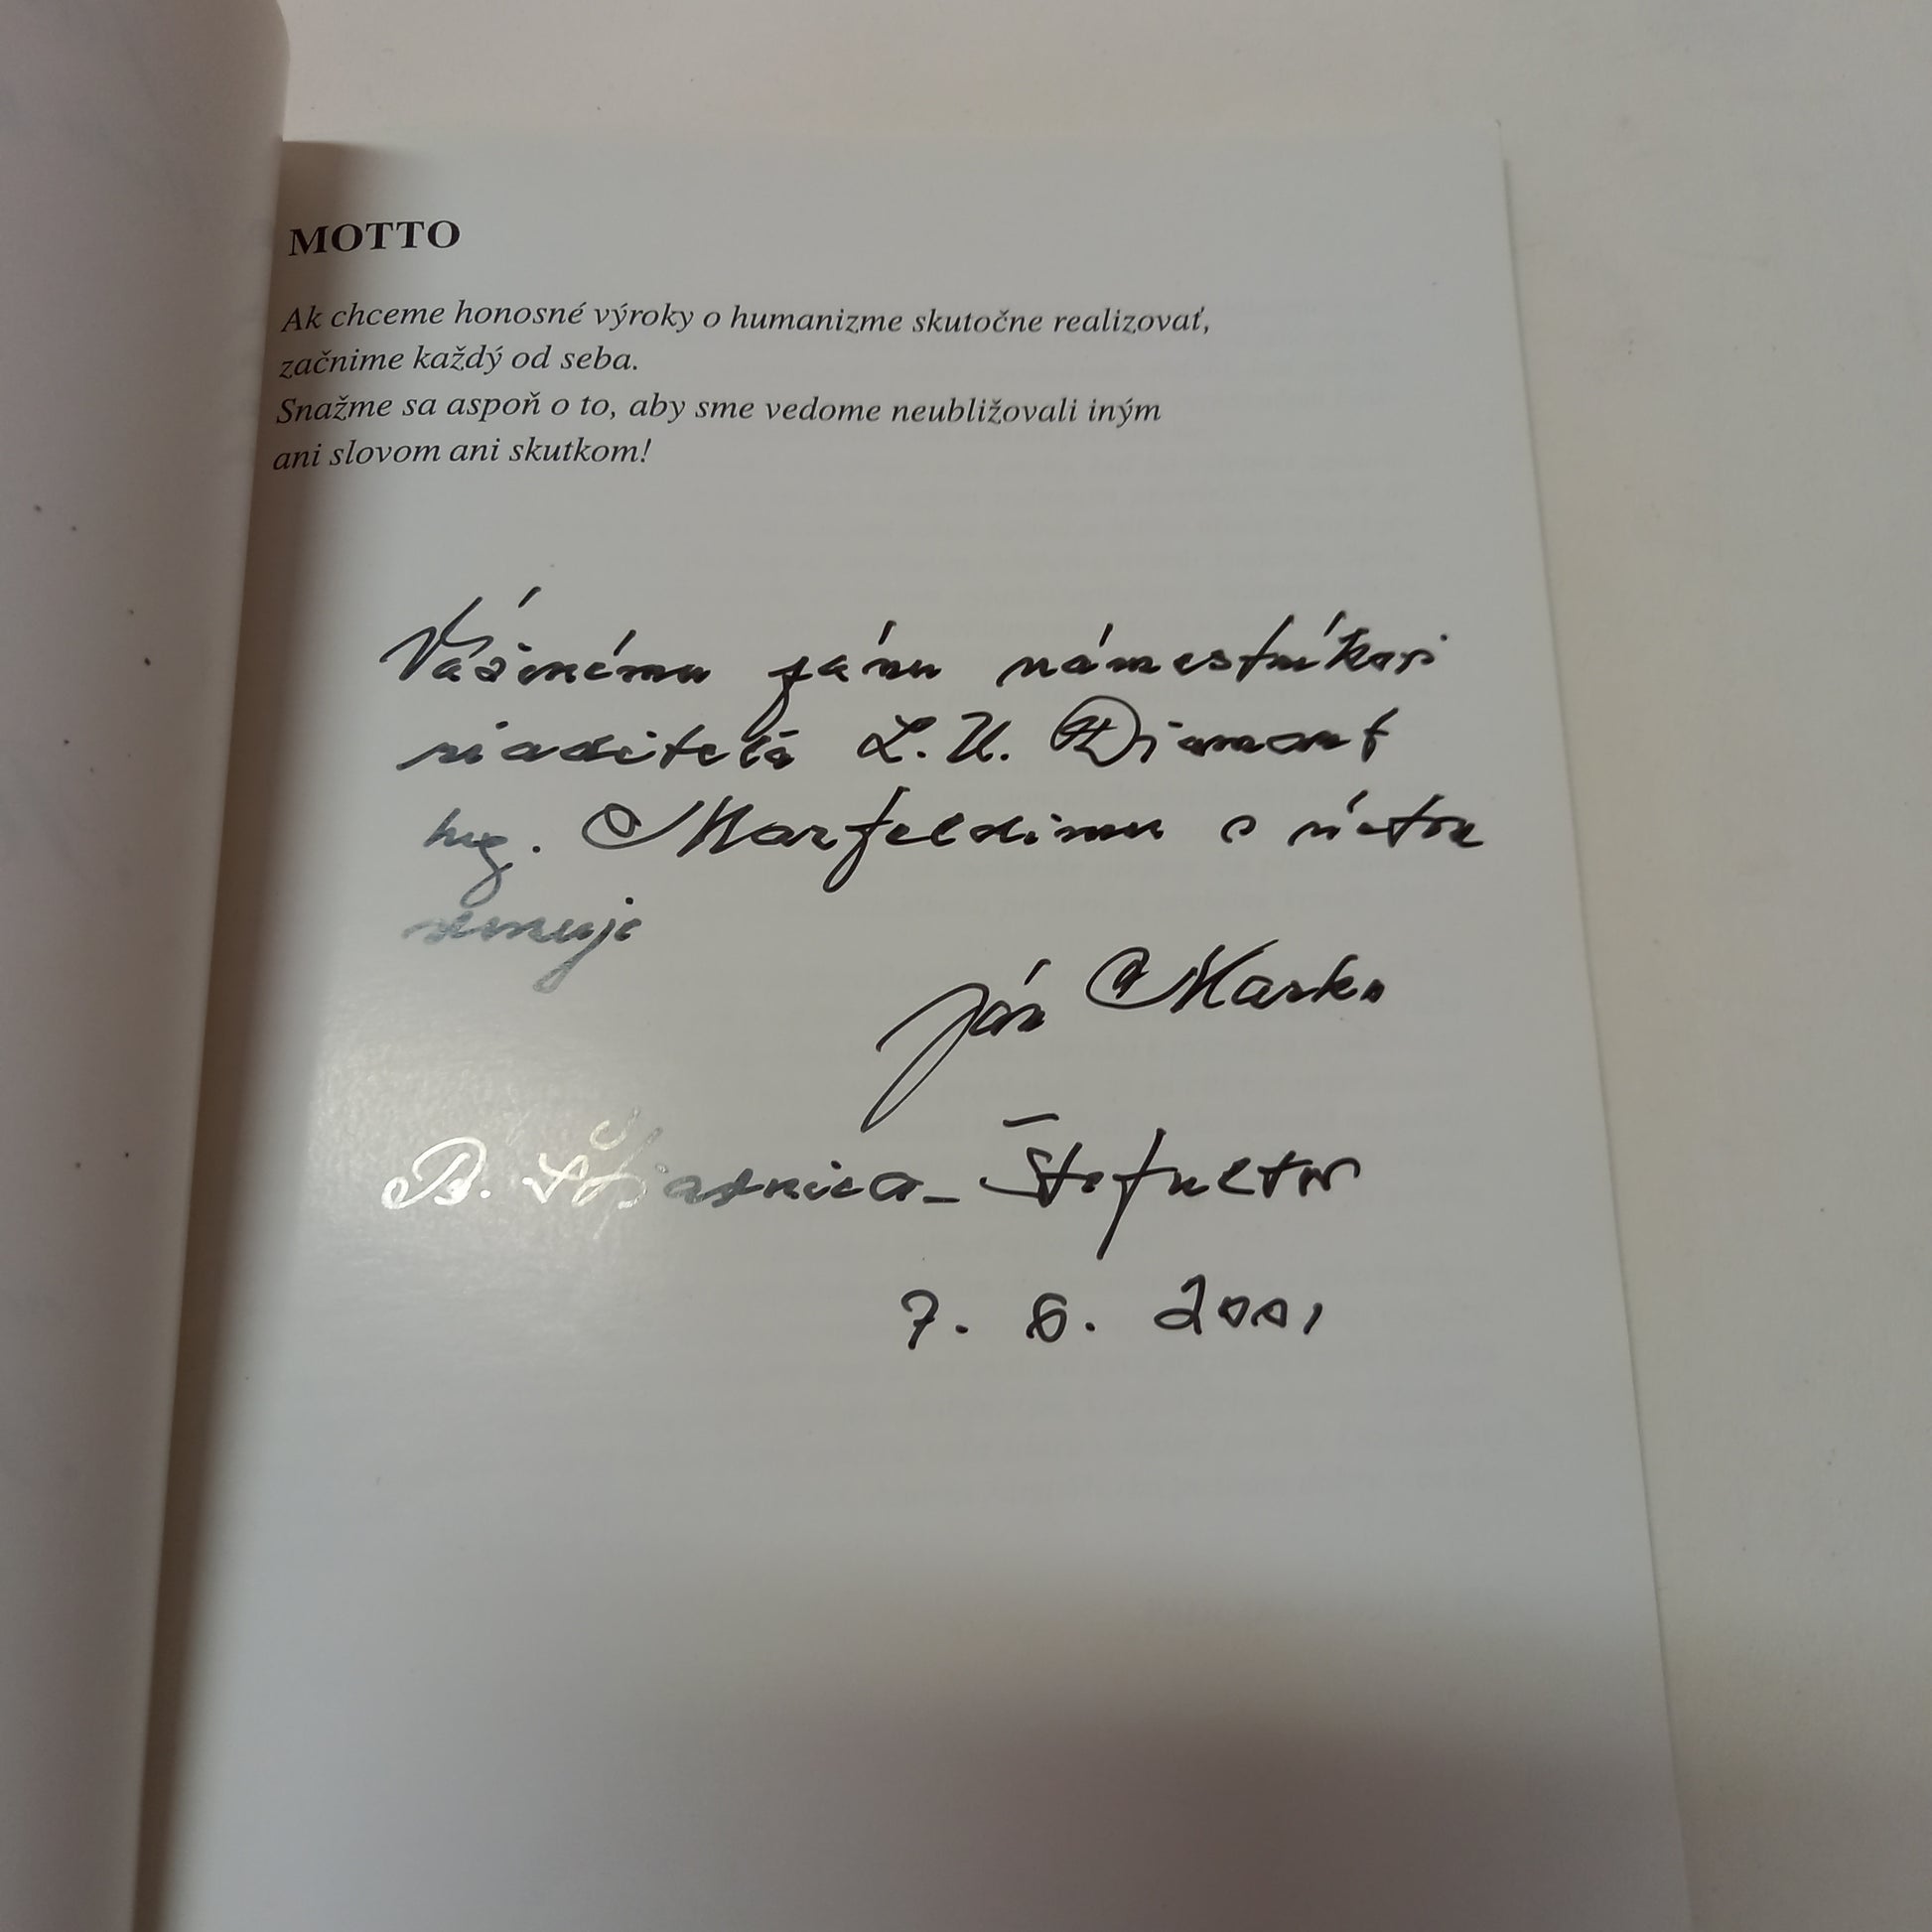 MOTTO
Ak chceme honosné výroky o humanizme skutočne realizovať,
začnime každý od seba.
Snažme sa aspoň o to, aby sme vedome neubližovali iným
ani slovom ani skutkom!
Váženému pánu námestníkovi
riaditeľa L.U. Diamant
Ing. Marfeldimu s úctou
venuje
Ján Marko
B. Štiavnica - Štefultov
7. 6. 2001